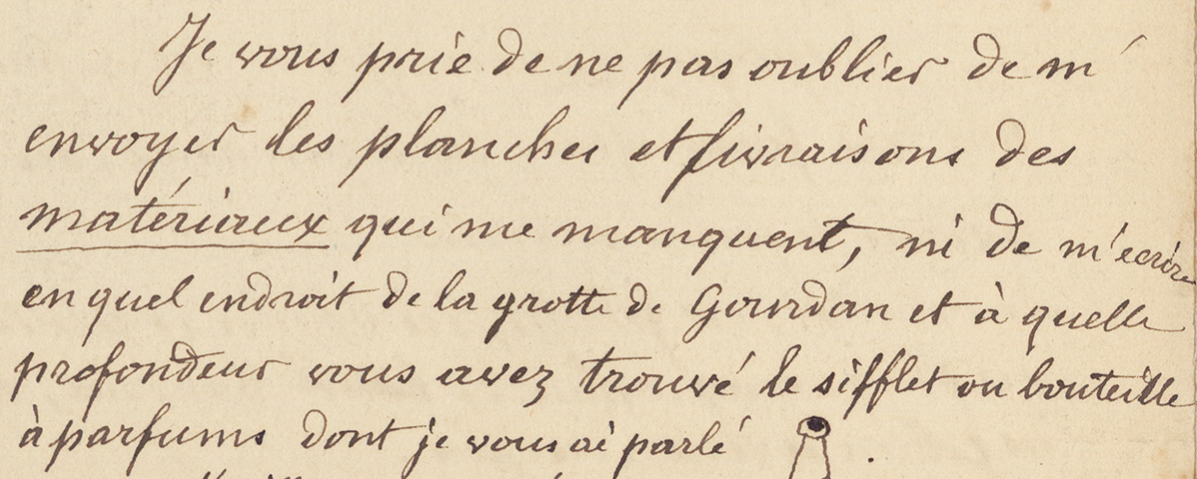 Je vous prie de ne pas oublier de m'
envoyer les planches et livraisons des
matériaux qui me manquent, ni de m'ecrire
en quel endroit de la grotte de Gourdan et à quelle
profondeur vous avez trouvé le sifflet ou bouteille
à parfums dont je vous ai parlé .